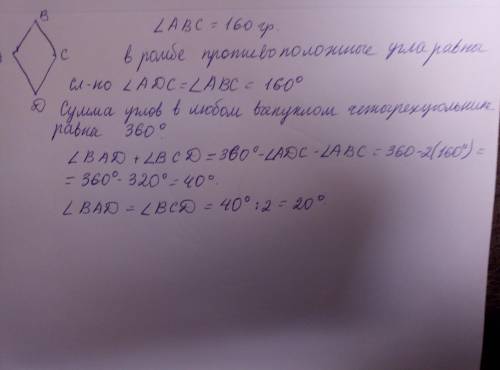 B
∠ABC = 160 гр.
C
в ромбе противоположные угла равны
сл-но ∠ADC = ∠ABC = 160°
D
Сумма углов в любом выпуклом четырехугольник
равна 360°.
∠BAD + ∠BCD = 360° - ∠ADC - ∠ABC = 360 - 2(160°) =
= 360° - 320° = 40°.
∠BAD = ∠BCD = 40° : 2 = 20°.